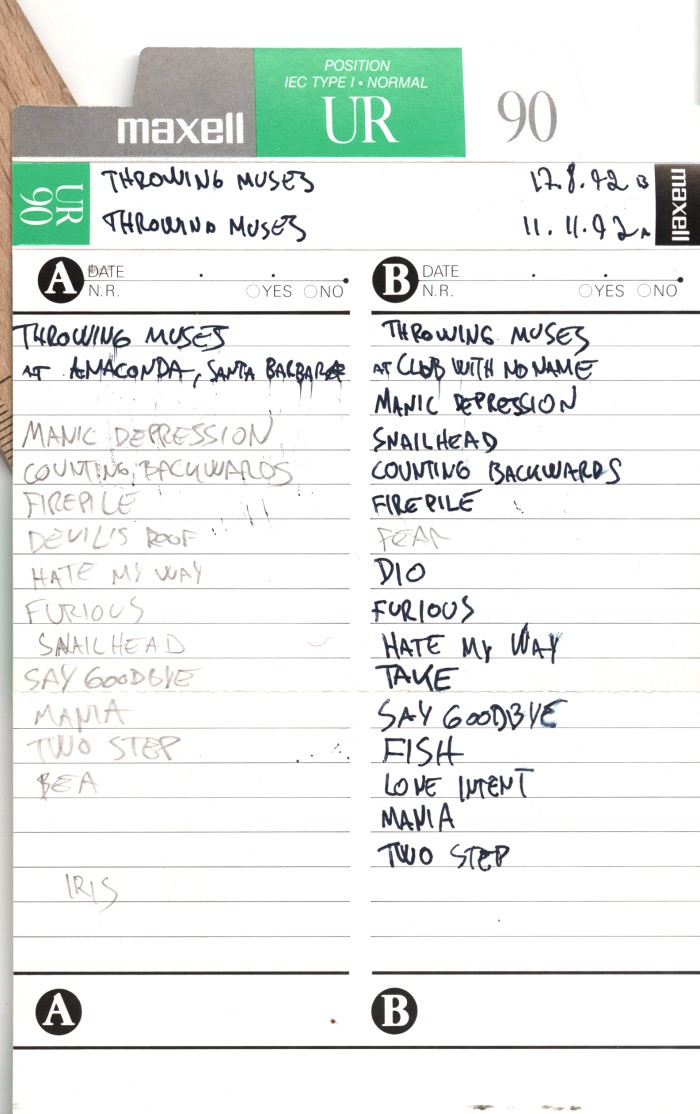 POSITION
IEC TYPE I • NORMAL
maxell UR 90
UR 90
THROWING MUSES 17.8.92 B
THROWING MUSES 11.11.92 A
maxell
A DATE
N.R. YES NO
THROWING MUSES
AT AMACONDA, SANTA BARBARA
MANIC DEPRESSION
COUNTING BACKWARDS
FIREPILE
DEVIL'S ROOF
HATE MY WAY
FURIOUS
SNAILHEAD
SAY GOODBYE
MANIA
TWO STEP
BEA
IRIS
A
B DATE
N.R. YES NO
THROWING MUSES
AT CLUB WITH NO NAME
MANIC DEPRESSION
SNAILHEAD
COUNTING BACKWARDS
FIREPILE
FEAR
DIO
FURIOUS
HATE MY WAY
TAKE
SAY GOODBYE
FISH
LOVE INTENT
MANIA
TWO STEP
B